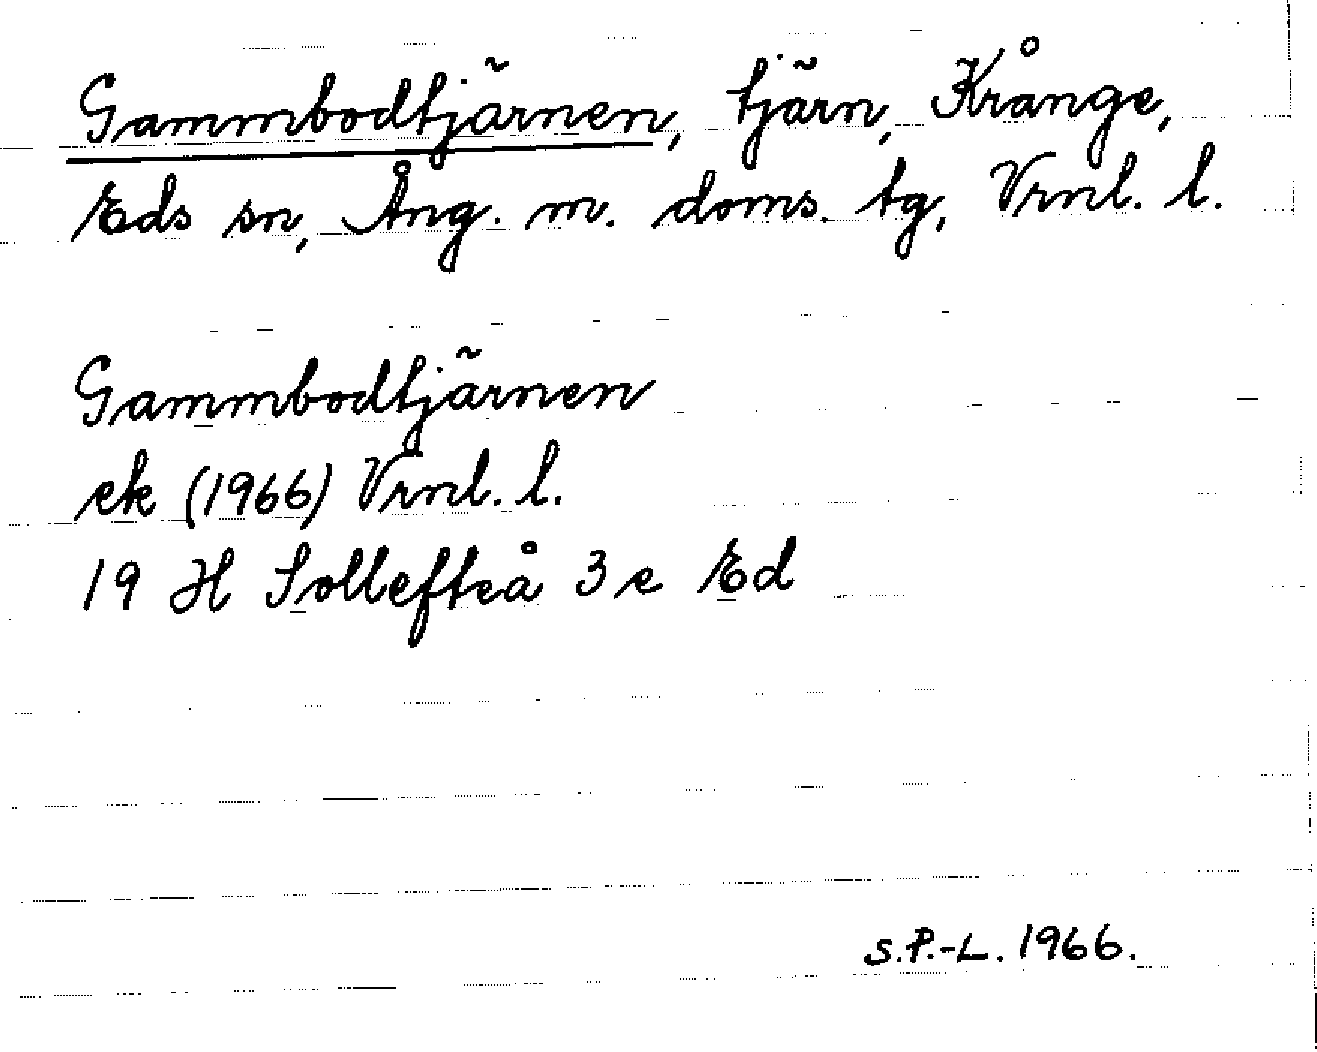 Gammbodtjärnen, tjärn, Krånge,
Eds sn, Ång. m. doms. tg, Vrnl. l.
Gammbodtjärnen
ek (1966) Vrnl. l.
19 H Sollefteå 3 e Ed
S.P.-L. 1966.